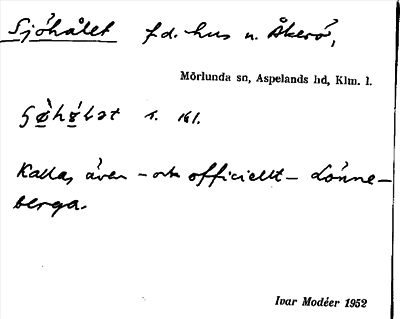 Sjöhålet f.d. hus u. Åkerö,
Mörlunda sn, Aspelands hd, Klm. l.
s. 161.
Kallas även – och officiellt – Lönne-
berga.
Ivar Modéer 1952